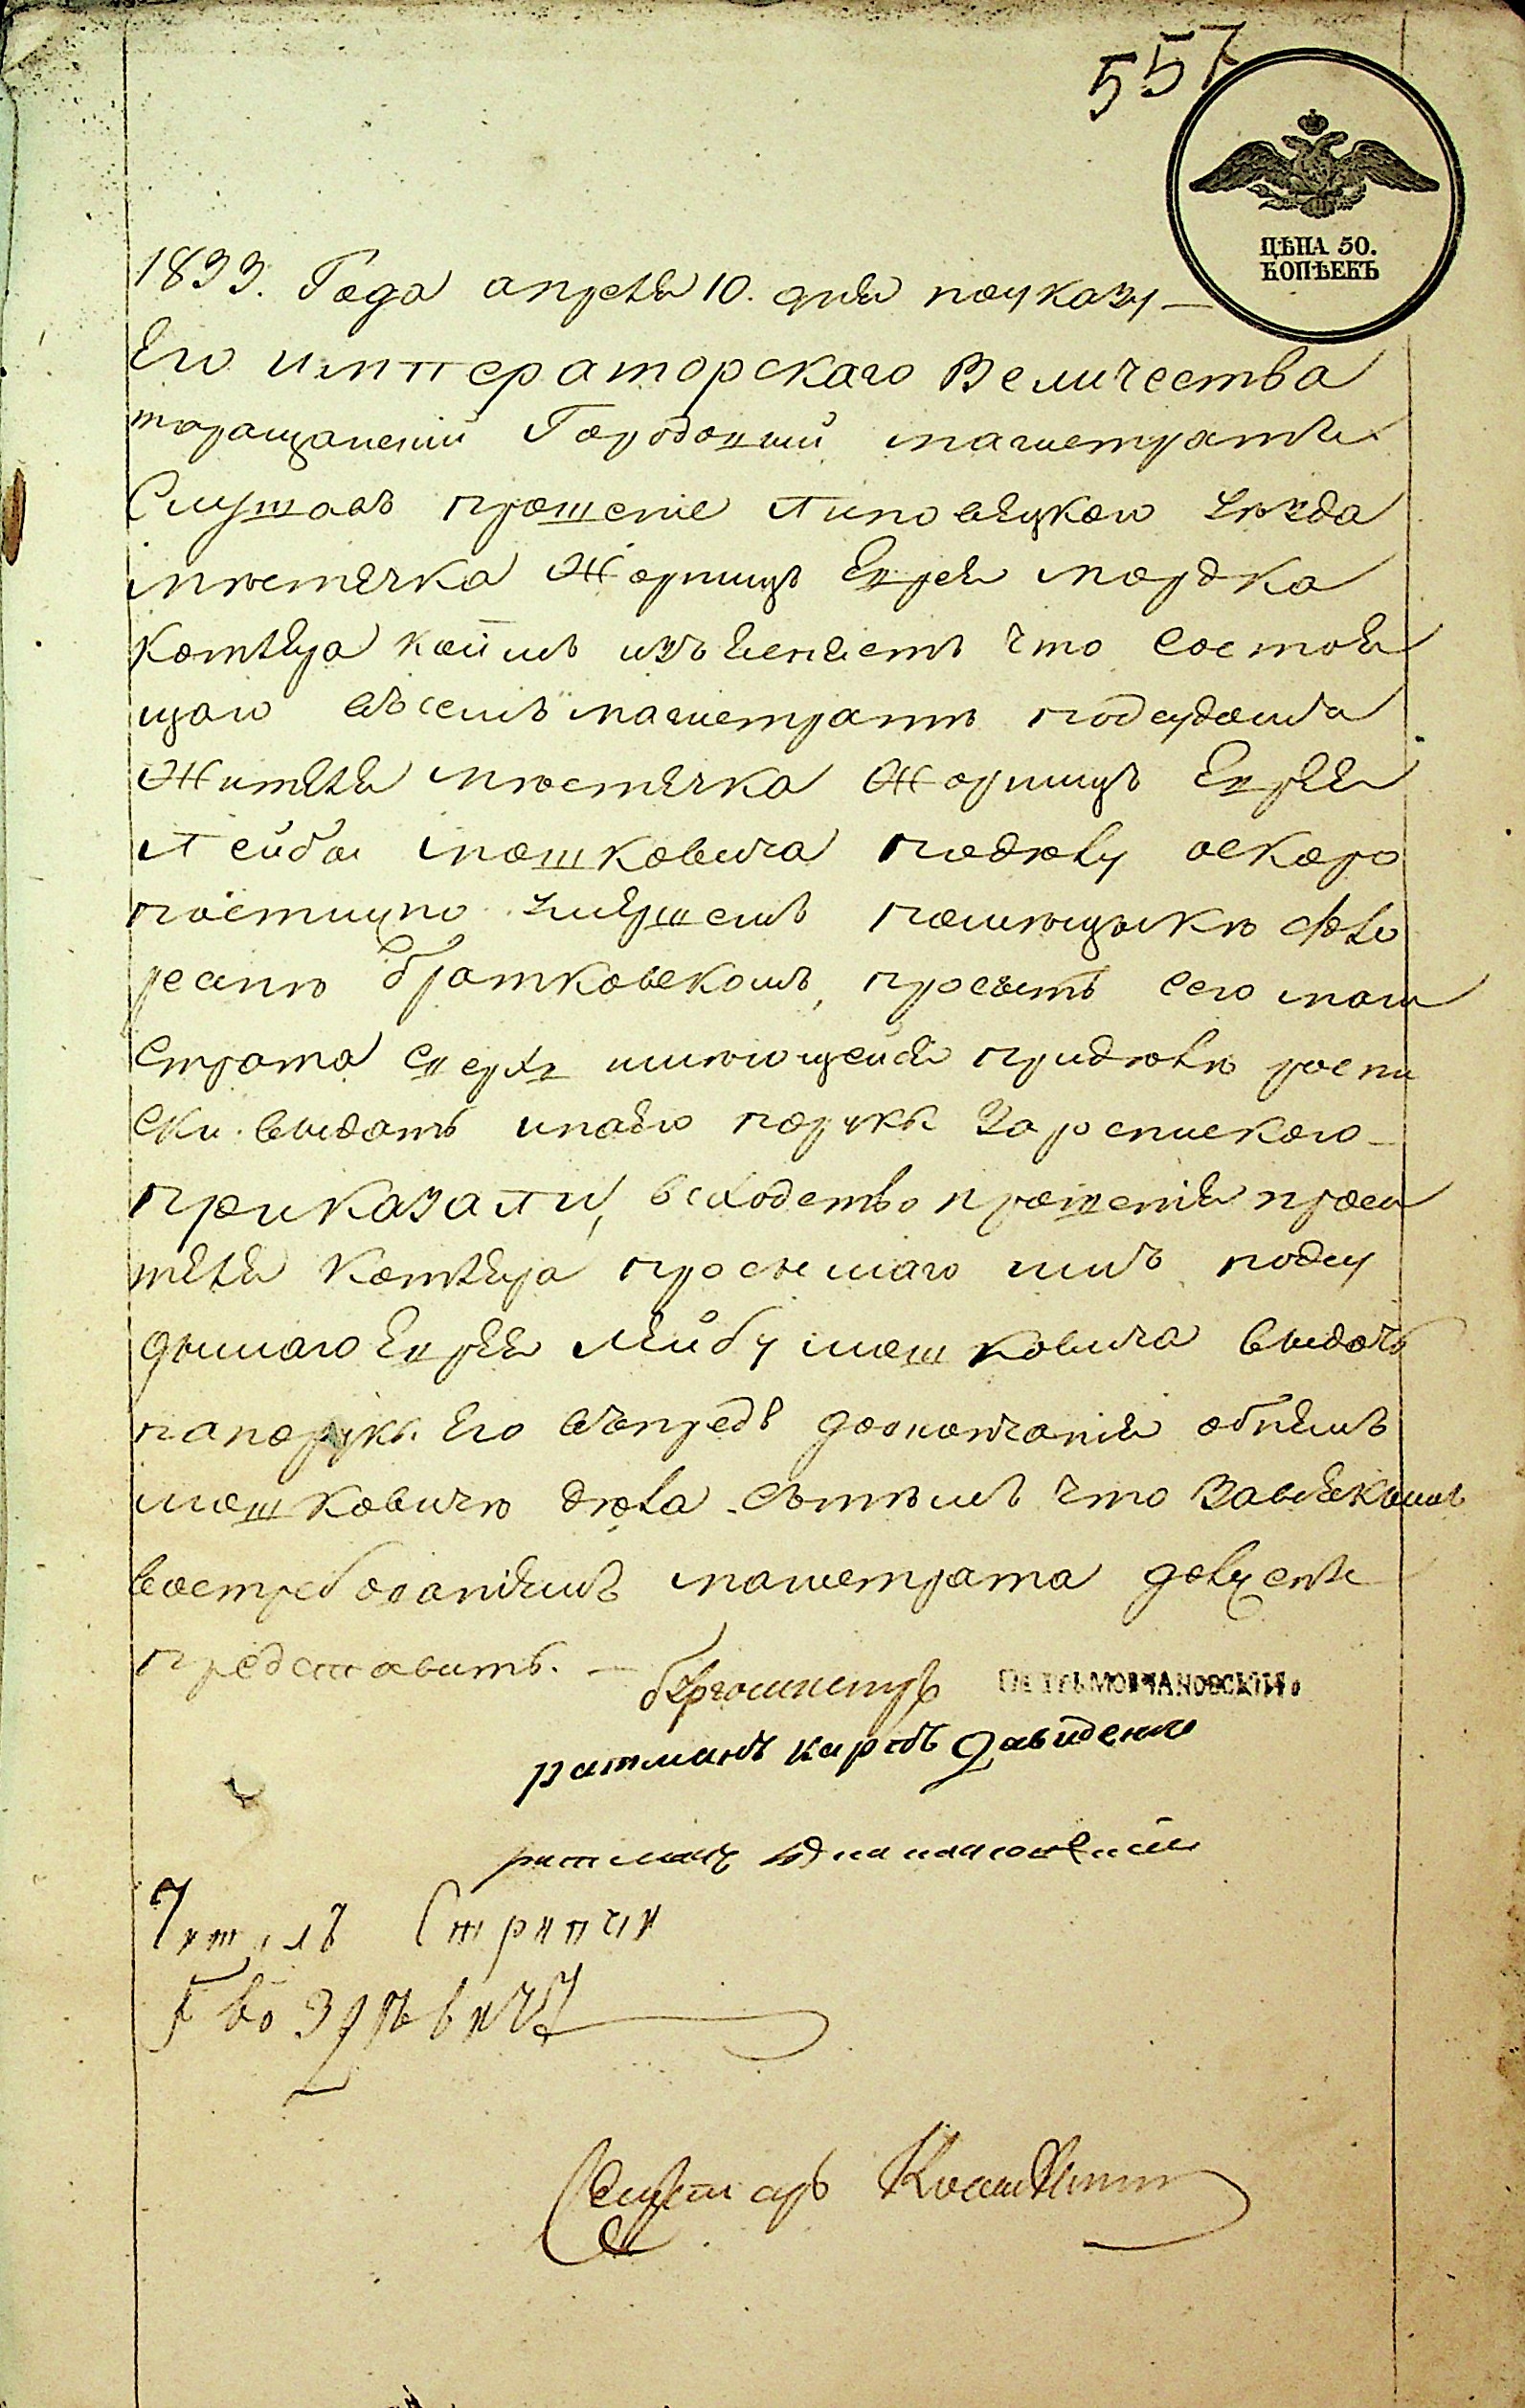 557
ЦѢНА 50.
КОПѢЕКЪ
1833. Года апреля 10. дня поуказу —
Его императорскаго Величества
таращанский Городовый магистратъ
Слушавъ прошение Липовецкого уезда
местечка Жорнищъ Еврея мордка
Котляра коимъ изъясняетъ что состоя
щаго въсемъ магистрате подсудимба
Жителя местечка Жорнищъ Еврея
Лейбы мошковича поделу оскоро
постижно умершемъ помещыке Фло
реане братковскомъ, проситъ сего маги
страта сверх имеющейся приделе роспи
ски выдать инаего поруки Заропискою —
приказали, всходство прошения проси
теля Котляра просимаго имъ подсу
дымаго Еврея Лейбу мошковича выдать
напоруки Его въпредь доокончания обнемъ
мошковиче дела стемъ что Завсякимъ
востребованиемъ магистрата долженъ
представить. —
бургомистръ ПЕТРЪ МОВЧАНОВСКИЙ
ратманъ карпъ Давиденко
ратманъ
Читалъ Стряпчи
Гвоздевичъ
Секретарь